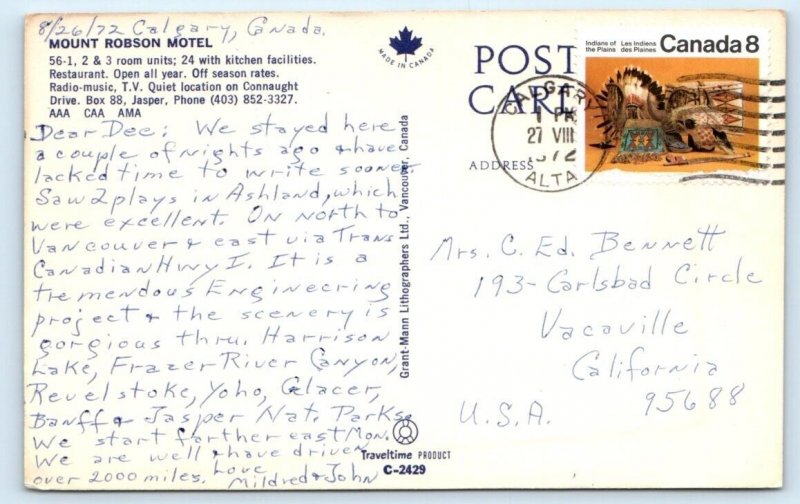 8/26/72 Calgary, Canada.
MOUNT ROBSON MOTEL
56-1, 2 & 3 room units; 24 with kitchen facilities.
Restaurant. Open all year. Off season rates.
Radio-music, T.V. Quiet location on Connaught
Drive. Box 88, Jasper, Phone (403) 852-3327.
AAA CAA AMA
Dear Dee: We stayed here
a couple of nights ago & have
lacked time to write sooner.
Saw 2 plays in Ashland, which
were excellent. On north to
Vancouver & east via Trans
Canadian Hwy I. It is a
tremendous Engineering
project & the scenery is
gorgious thru. Harrison
Lake, Frazer River Canyon,
Revelstoke, Yoho, Glacer,
Banff & Jasper Nat. Parks.
We start farther east Mon.
We are well & have driven
over 2000 miles. Love
Mildred & John
MADE IN CANADA
Grant-Mann Lithographers Ltd., Vancouver, Canada
Traveltime PRODUCT
C-2429
POST
CARD
ADDRESS
CALGARY
1 PM
27 VIII
1972
ALTA
Indians of Les Indiens
the Plains des Plaines
Canada 8
Mrs. C. Ed. Bennett
193-Carlsbad Circle
Vacaville
California
U.S.A. 95688